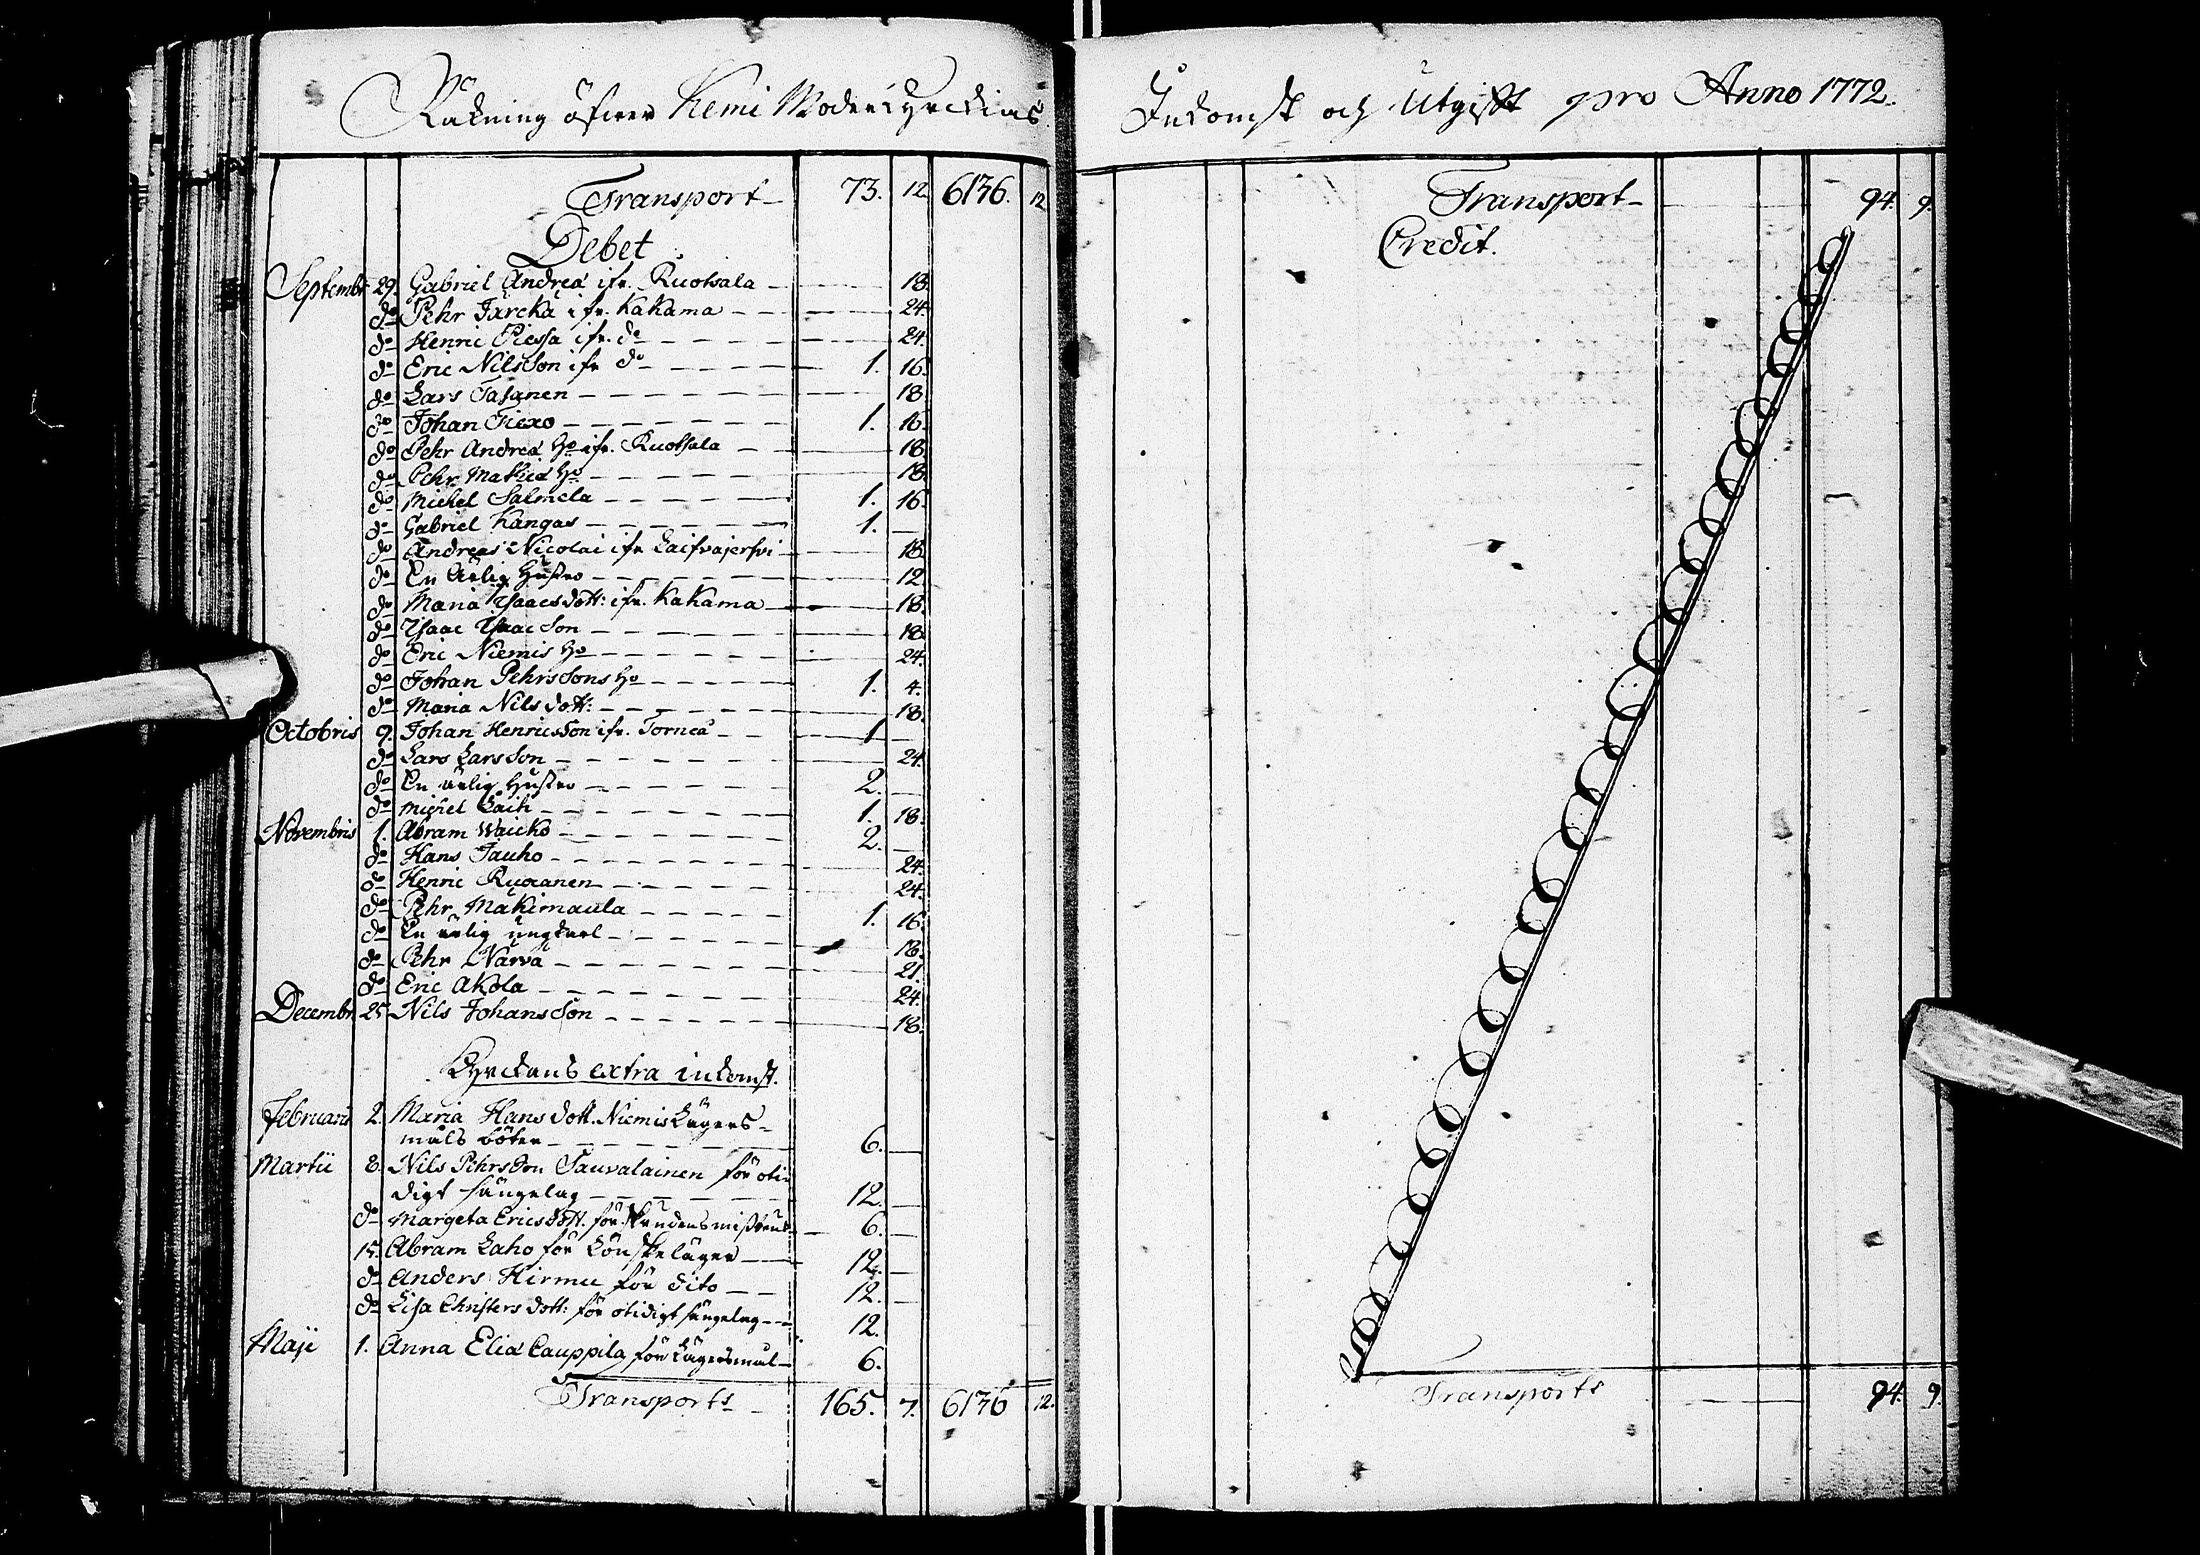 Räkning öfwer Kemi Moderkyrckias
Transport 73. 12. 6136. 12
Debet
Septembr 29. Gabriel Andreæ ifr. Ruotsala 18.
do Pehr Jarcka ifr. Kakama 24.
do Henric Piessa ifr. do 24.
do Eric Nilsson ifr do 1. 16.
do Lars Tapanen 18.
do Johan Fiexo 1. 16.
do Pehr Andreæ Ho ifr. Ruotsala 18.
do Pehr Mathiæ Ho 18.
do Michel Salmela 1. 16.
do Gabriel Kangas 1.
do Andreas Nicolai ifr Laifvajerfvi 18.
do En ärlig Hustro 12.
do Maria Isaacs dott: ifr. Kakama 18.
do Isaac Isaacson 18.
do Eric Niemis Ho 24.
do Johan Pehrssons Ho 1. 4.
do Maria Nils dott: 18.
Octobris 9. Johan Henricsson ifr. Torneå 1
do Lars Larsson 24.
do En ärlig Hustro 2.
do Michel Laiti 1. 18.
Novembris 1. Abram Waicko 2.
do Hans Jauho 24.
do Henric Ruonanen 24.
do Pehr Mäkimaula 1. 16.
do En ärlig ungkarl 18.
do Pehr Närvä 21.
do Eric Akola 24.
Decembr. 25 Nils Johansson 18.
Kyrckans extra inkomst.
Februarii 2. Maria Hans dott. Niemis Lägers-
måls böter 6.
Martii 8. Nils Pehrsson Tauvalainen för oti-
digt sängelag 12.
do Margeta Erics dott. för skrudens missbruk 6.
15. Abram Laho för Lönskeläger 12.
do Anders Hirmu för dito 12.
do Lisa Christers dott: för otidigt sängelag 12.
Maji 1. Anna Eliæ Cauppila för Lägersmål 6.
Transports 165. 7. 6136 12.
Inkomst och Utgifft pro Anno 1772.
Transport 94. 9.
Credit.
Transports 94. 9.